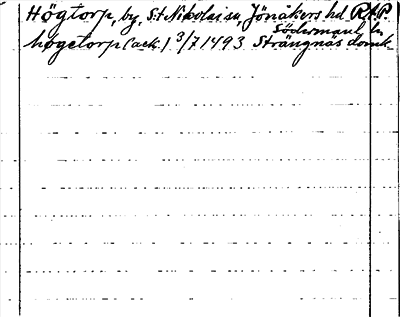 Högtorp, by, S:t Nikolai sn, Jönåkers hd R.A.P.
Södermanl. ln
högetorp (ack.) 3/7 1493 Strängnäs domk.